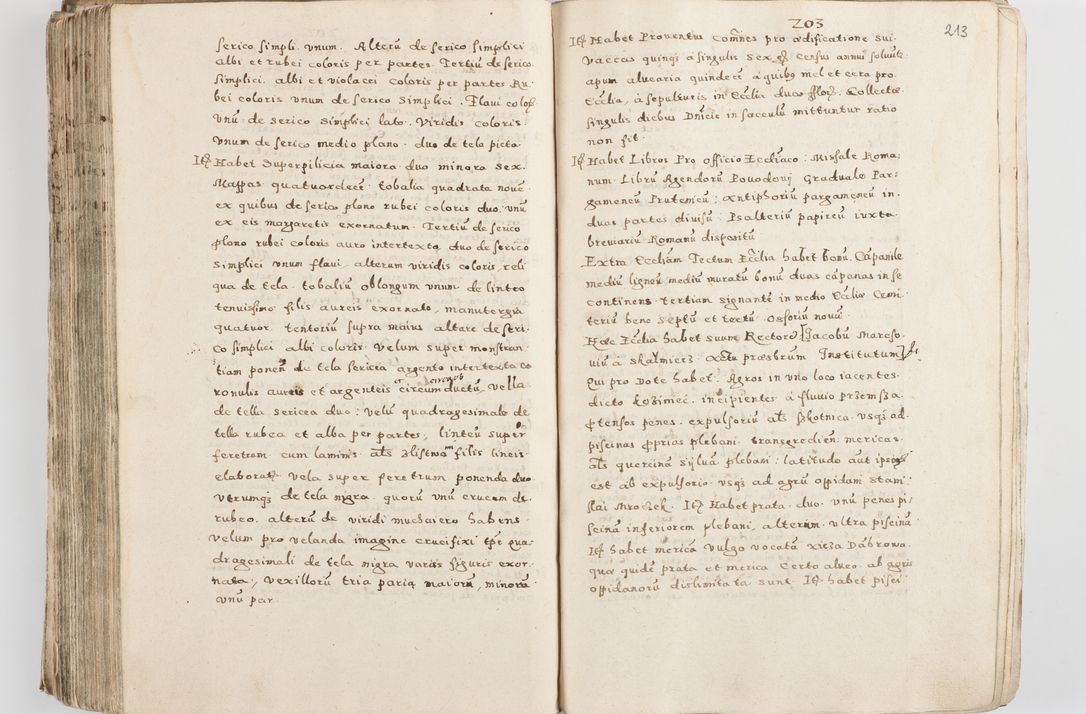 serico simpli. vnum. Alterū de serico simplici
albi et rubei coloris per partes. Tertiū de serico
simplici. albi et violacei coloris per partes Ru-
bei coloris vnum de serico simplici. Flaui colorꝭ
vnū de serico simplici lato. Viridis coloris
vnum de serico medio plano. duo de tela picta
Itꝭ Habet Superpilicia maiora duo minora sex.
Mappas quatuordecē tobalia quadrata nouē
ex quibus de serico plano rubei coloris duo, vnū
ex eis margaretis exornatum. Tertiū de serico
plano rubei coloris auro intertexto duo de serico
simplici vnum flaui, alterum viridis coloris, reli
qua de tela. tobaliū oblongum vnum de linteo
tenuissimo filis aureis exornato, manutergia
quatuor. tentoriū supra maius altare de seri-
co simplici albi coloris. Velum super monstran
tiam ponēn de tela sericia argento intertexta co
ronulis aureis et argenteis circumductū, vella
de tella sericea duo: velū quadragesimale de
tella rubea et alba per partes, linteū super
feretrom cum laminis als Blistwa filis lineis
elaborat, vela super feretrum ponenda duo
vtrumqꝫ de tela nigra. quorū vnū crucem de
rubeo. alterū de viridi muchaiero habens
velum pro velanda imagine crucifixi tp̄e qua-
dragesimali de tela nigra varijs figuris exor-
nata, vexillorū tria paria maiorū, minorū
vnū par.
203
213
Itꝭ Habet Prouentus com̄nes pro ædificatione sui.
vaccas quinqꝫ a singulis sex census annui soluūt
apum aluearia quindecī a quibꝯ mel et cera pro
Ecclīa, à sepulturis in Ecclīa duos floꝭ. Collectæ
singulis diebus Dnīcis in sacculū mittuntur ratio
non fit.
Itꝭ Habet Libros Pro officio Ecclīaco: Missale Roma-
num Librū Agendorū Powodowij Graduale Par-
gameneū Prutenicū; Antiphoriū pargameneū in
duas partes diuisū; Psalteriū papireū iuxta
breviariū Romanū dispositū
Extra Ecclīam Tectum Ecclīa habet bonū. Cāpanile
mediū ligneū, mediū muratū bonū duas cāpanas in se
continens tertiam signantē in medio Ecclīæ Cemi-
teriū bene septū et tectū. Osforiū nouū.
Hæc Ecclīa habet suum Rectorē [Jacobū Mareso-
uiū à Skalmierz præsbrum Institutum]
Qui pro Dote habet. Agros in vno loco iacentes.
dicto Łozimiec. incipientes à fluuio przemsza.
ꝓtensos penes. expulsoriū als szkotnica vsqꝫ ad
piscinas ꝓprias plebani. transgredien. mericas
als quercinā syluā plebani: latitudo aut ipsoꝝ
est ab expulsorio vsqꝫ ad agrū oppidani stani
slai Mroczek. Itꝭ Habet prata duo. vnū penes pi-
scinā inferiorem plebani, alterum vltra piscinā
Itꝭ habet mericā vulgo vocatā xięża Dąbrowa.
quæ quidē prata et merica certo alueo ab agris
oppidanorū dislimitata sunt. Itꝭ habet pisci